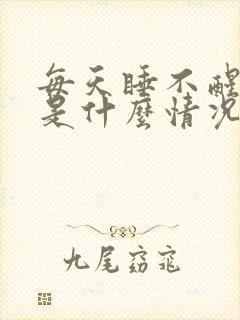 每天睡不醒
是什麼情況
九尾窈窕